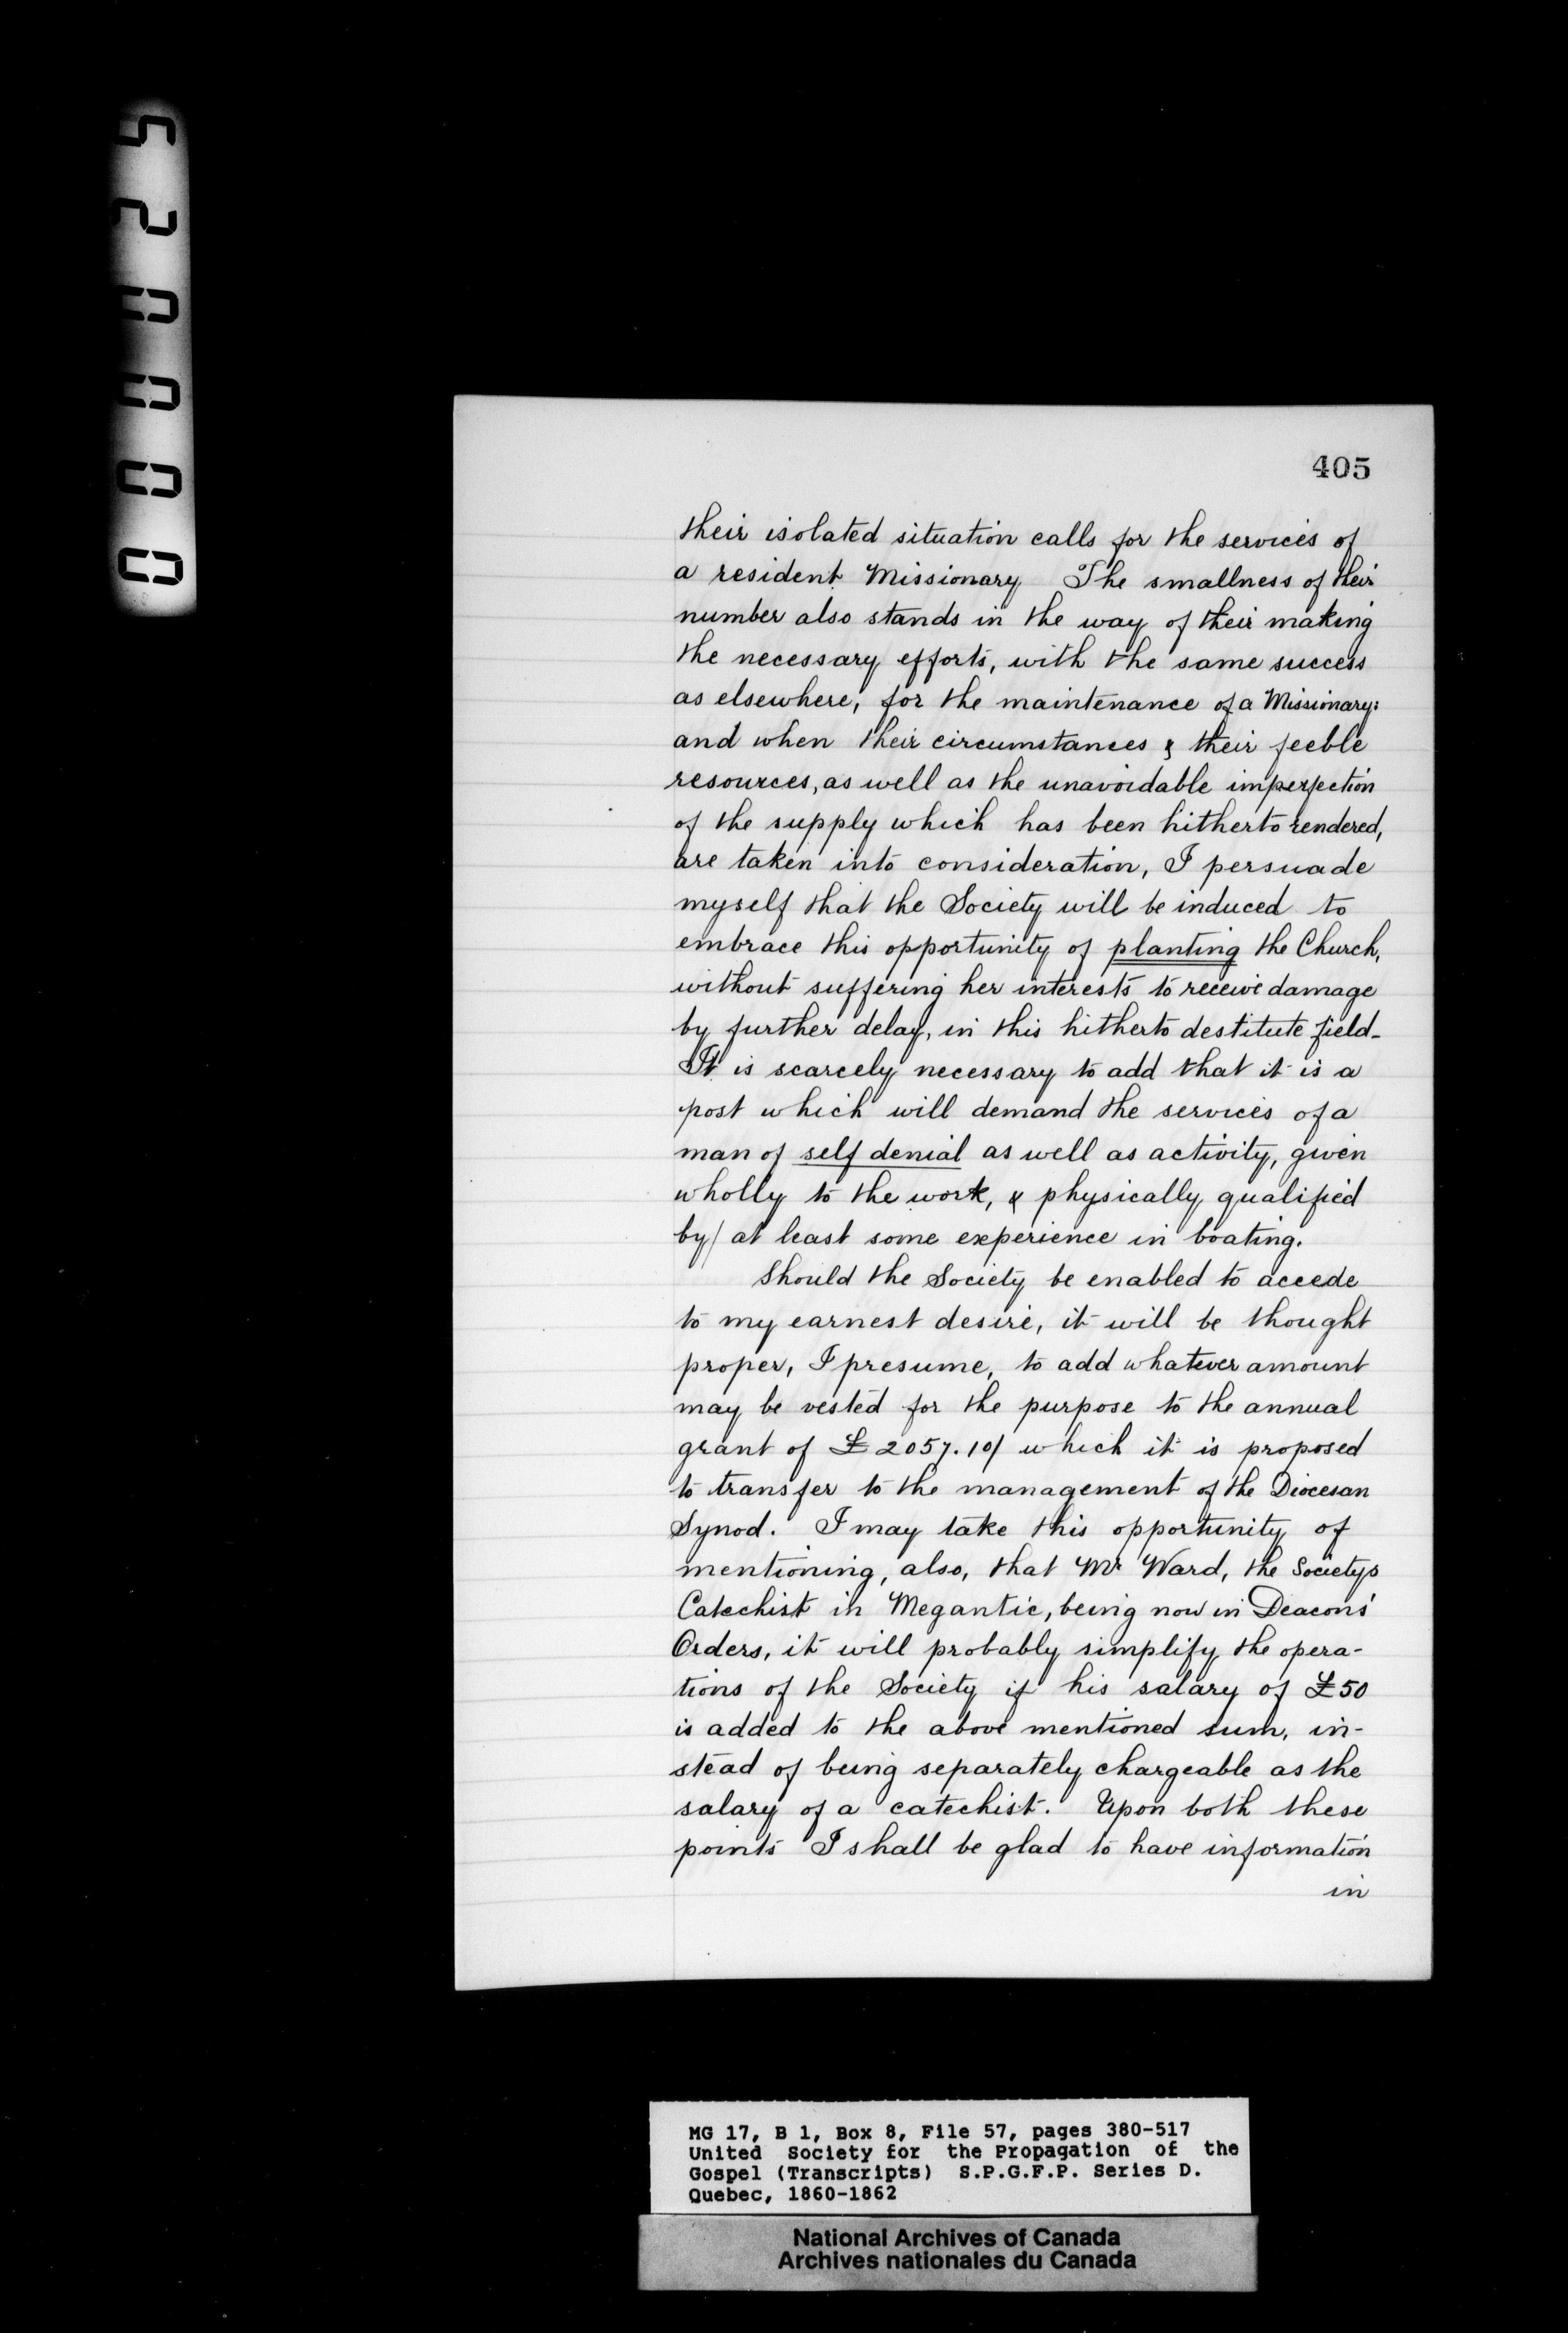 520000
405
their isolated situation calls for the services of
a resident Missionary The smallness of their
number also stands in the way of their making
the necessary efforts, with the same success
as elsewhere, for the maintenance of a Missionary:
and when their circumstances & their feeble
resources, as well as the unavoidable imperfection
of the supply which has been hitherto rendered,
are taken into consideration, I persuade
myself that the Society will be induced to
embrace this opportunity of planting the Church,
without suffering her interests to receive damage
by further delay, in this hitherto destitute field-
It is scarcely necessary to add that it is a
post which will demand the services of a
man of self denial as well as activity, given
wholly to the work, & physically qualified
by/ at least some experience in boating.
Should the Society be enabled to accede
to my earnest desire, it will be thought
proper, I presume, to add whatever amount
may be vested for the purpose to the annual
grant of £2057.10/ which it is proposed
to transfer to the management of the Diocesan
Synod. I may take this opportunity of
mentioning, also, that Mr Ward, the Societys
Catechist in Megantic, being now in Deacons'
Orders, it will probably simplify the opera-
tions of the Society if his salary of £50
is added to the above mentioned sum, in-
stead of being separately chargeable as the
salary of a catechist. Upon both these
points I shall be glad to have information
in
MG 17, B 1, Box 8, File 57, pages 380-517
United Society for the Propagation of the
Gospel (Transcripts) S.P.G.F.P. Series D.
Quebec, 1860-1862
National Archives of Canada
Archives nationales du Canada